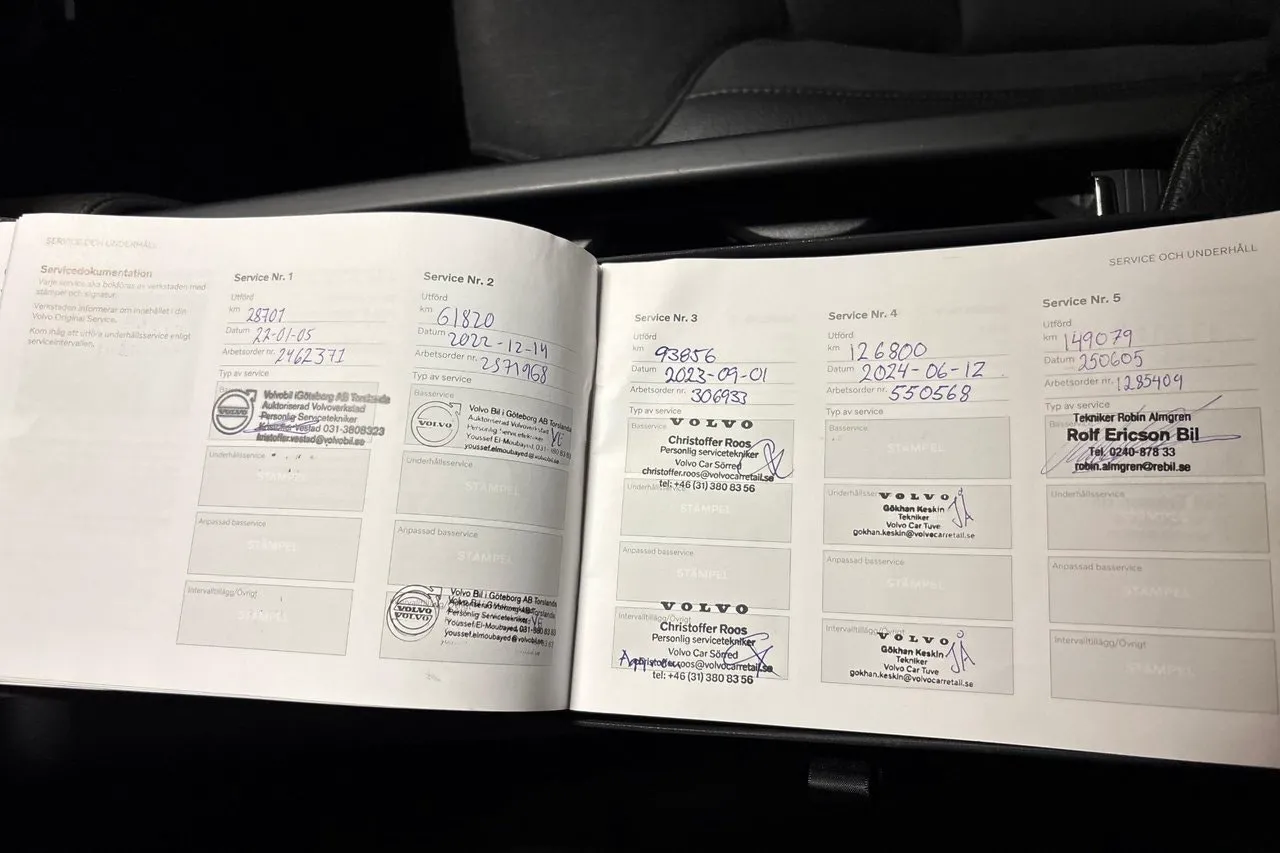 SERVICE OCH UNDERHÅLL
Servicedokumentation
Varje service ska bokföras av verkstaden med
stämpel och signatur.
Verkstaden informerar om innehållet i din
Volvo Original Service.
Kom ihåg att utföra underhållsservice enligt
serviceintervallen.
Service Nr. 1
Utförd
km 28701
Datum 22-01-05
Arbetsorder nr. 2462371
Typ av service
Volvobil i Göteborg AB Torslanda
Auktoriserad Volvoverkstad
Personlig Servicetekniker
Kristoffer Vestad 031-3808323
kristoffer.vestad@volvobil.se
VOLVO
Underhållsservice
STÄMPEL
Anpassad basservice
STÄMPEL
Intervalltillägg/Övrigt
STÄMPEL
Service Nr. 2
Utförd
km 61820
Datum 2022-12-14
Arbetsorder nr. 2571968
Typ av service
Basservice
VOLVO
Volvo Bil i Göteborg AB Torslanda
Auktoriserad Volvoverkstad
Personlig Servicetekniker
Youssef El-Moubayed, 031-380 83 83
youssef.elmoubayed@volvobil.se
Underhållsservice
STÄMPEL
Anpassad basservice
STÄMPEL
VOLVO
VOLVO
Volvo Bil i Göteborg AB Torslanda
Personlig Servicetekniker
Youssef El-Moubayed, 031-380 83 83
youssef.elmoubayed@volvobil.se
Service Nr. 3
Utförd
km 93856
Datum 2023-09-01
Arbetsorder nr. 306933
Typ av service
Basservice
VOLVO
Christoffer Roos
Personlig servicetekniker
Volvo Car Sörred
christoffer.roos@volvocarretail.se
tel: +46 (31) 380 83 56
Underhållsservice
STÄMPEL
Anpassad basservice
STÄMPEL
Intervalltillägg/Övrigt
VOLVO
Christoffer Roos
Personlig servicetekniker
Volvo Car Sörred
christoffer.roos@volvocarretail.se
tel: +46 (31) 380 83 56
SERVICE OCH UNDERHÅLL
Service Nr. 4
Utförd
km 126800
Datum 2024-06-12
Arbetsorder nr. 550568
Typ av service
Basservice
STÄMPEL
Underhållsservice
VOLVO
Gökhan Keskin
Tekniker
Volvo Car Tuve
gokhan.keskin@volvocarretail.se
Anpassad basservice
STÄMPEL
Intervalltillägg/Övrigt
VOLVO
Gökhan Keskin
Tekniker
Volvo Car Tuve
gokhan.keskin@volvocarretail.se
Service Nr. 5
Utförd
km 149079
Datum 250605
Arbetsorder nr. 1285409
Typ av service
Tekniker Robin Almgren
Rolf Ericson Bil
Tel. 0240-878 33
robin.almgren@rebil.se
Underhållsservice
Anpassad basservice
STÄMPEL
Intervalltillägg/Övrigt
STÄMPEL